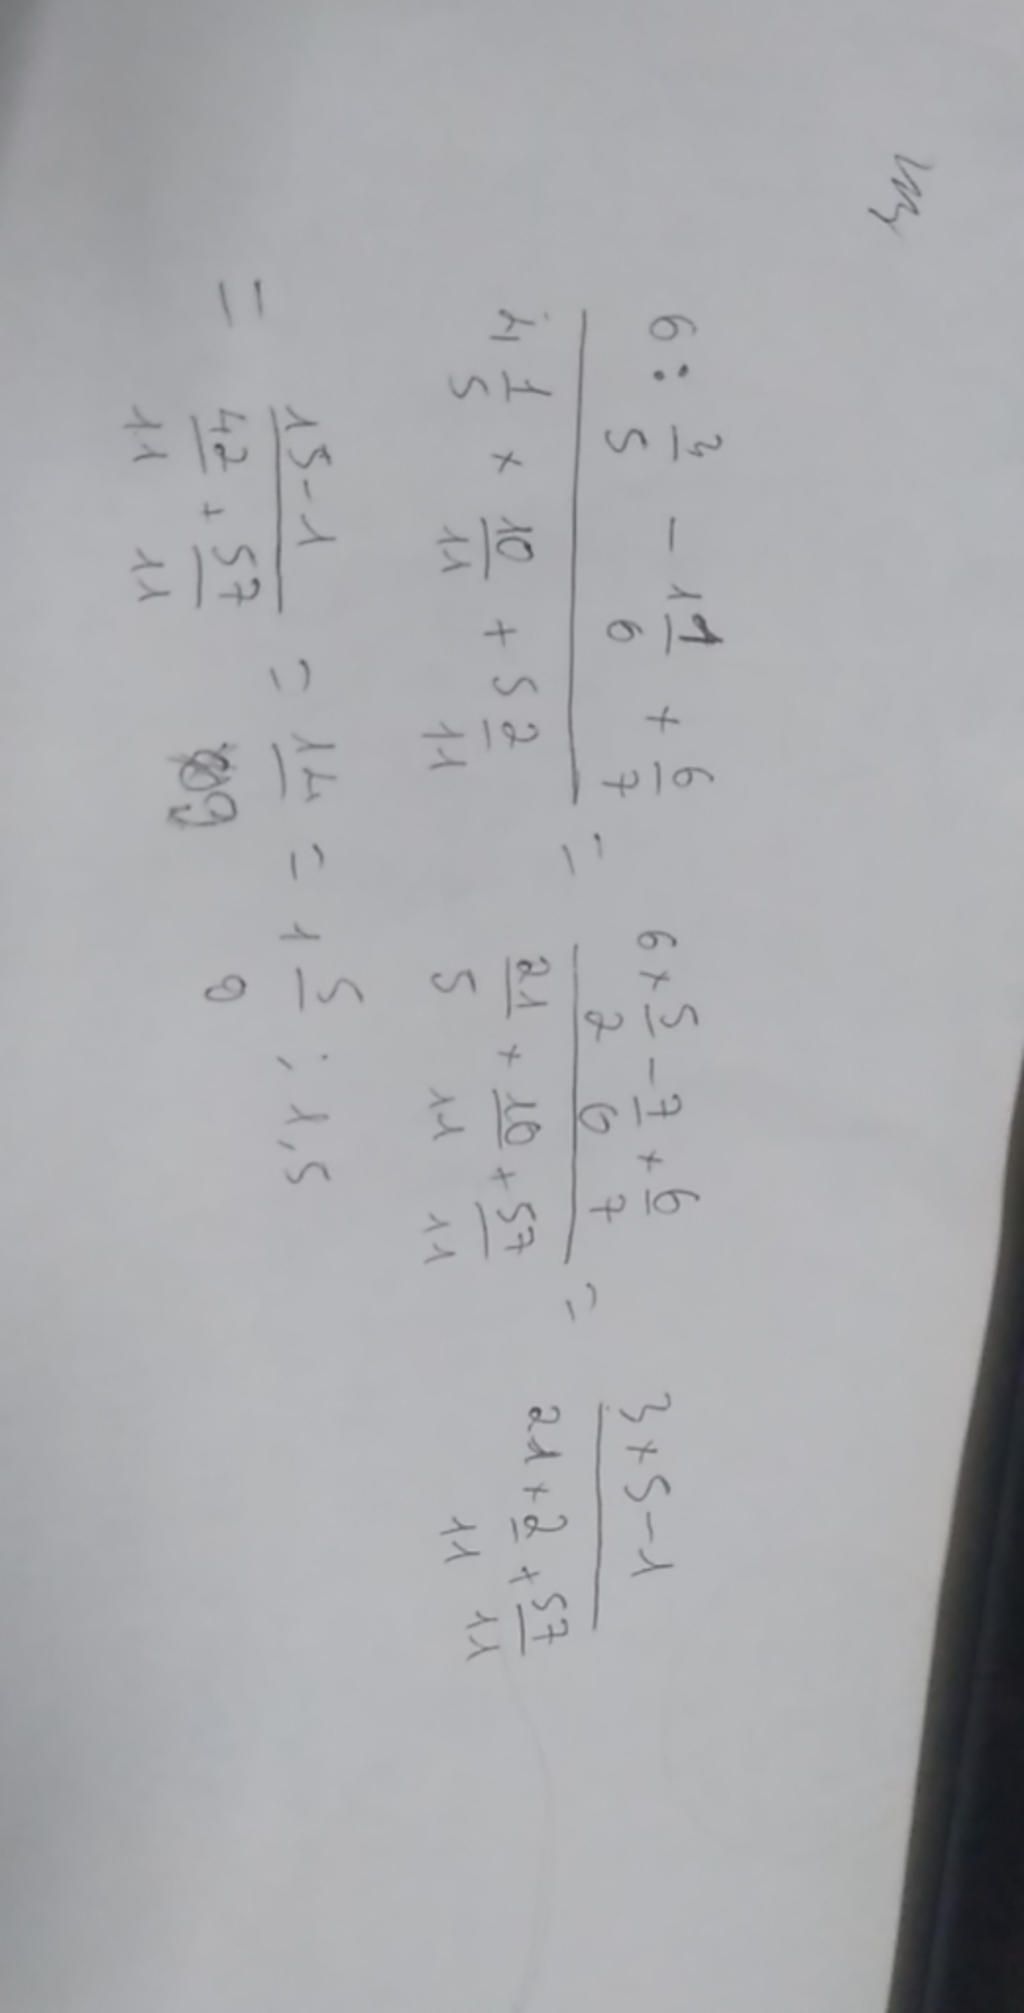 6 : 2/5 - 1 1/6 × 6/7 / 4 1/5 × 10/11 + 5 2/11 = 6 × 5/2 - 7/6 × 6/7 / 21/5 × 10/11 + 57/11 = 3 × 5 - 1 / 21 × 2/11 + 57/11
= 15 - 1 / 42/11 + 57/11 = 14/9 = 1 5/9 ; 1,5